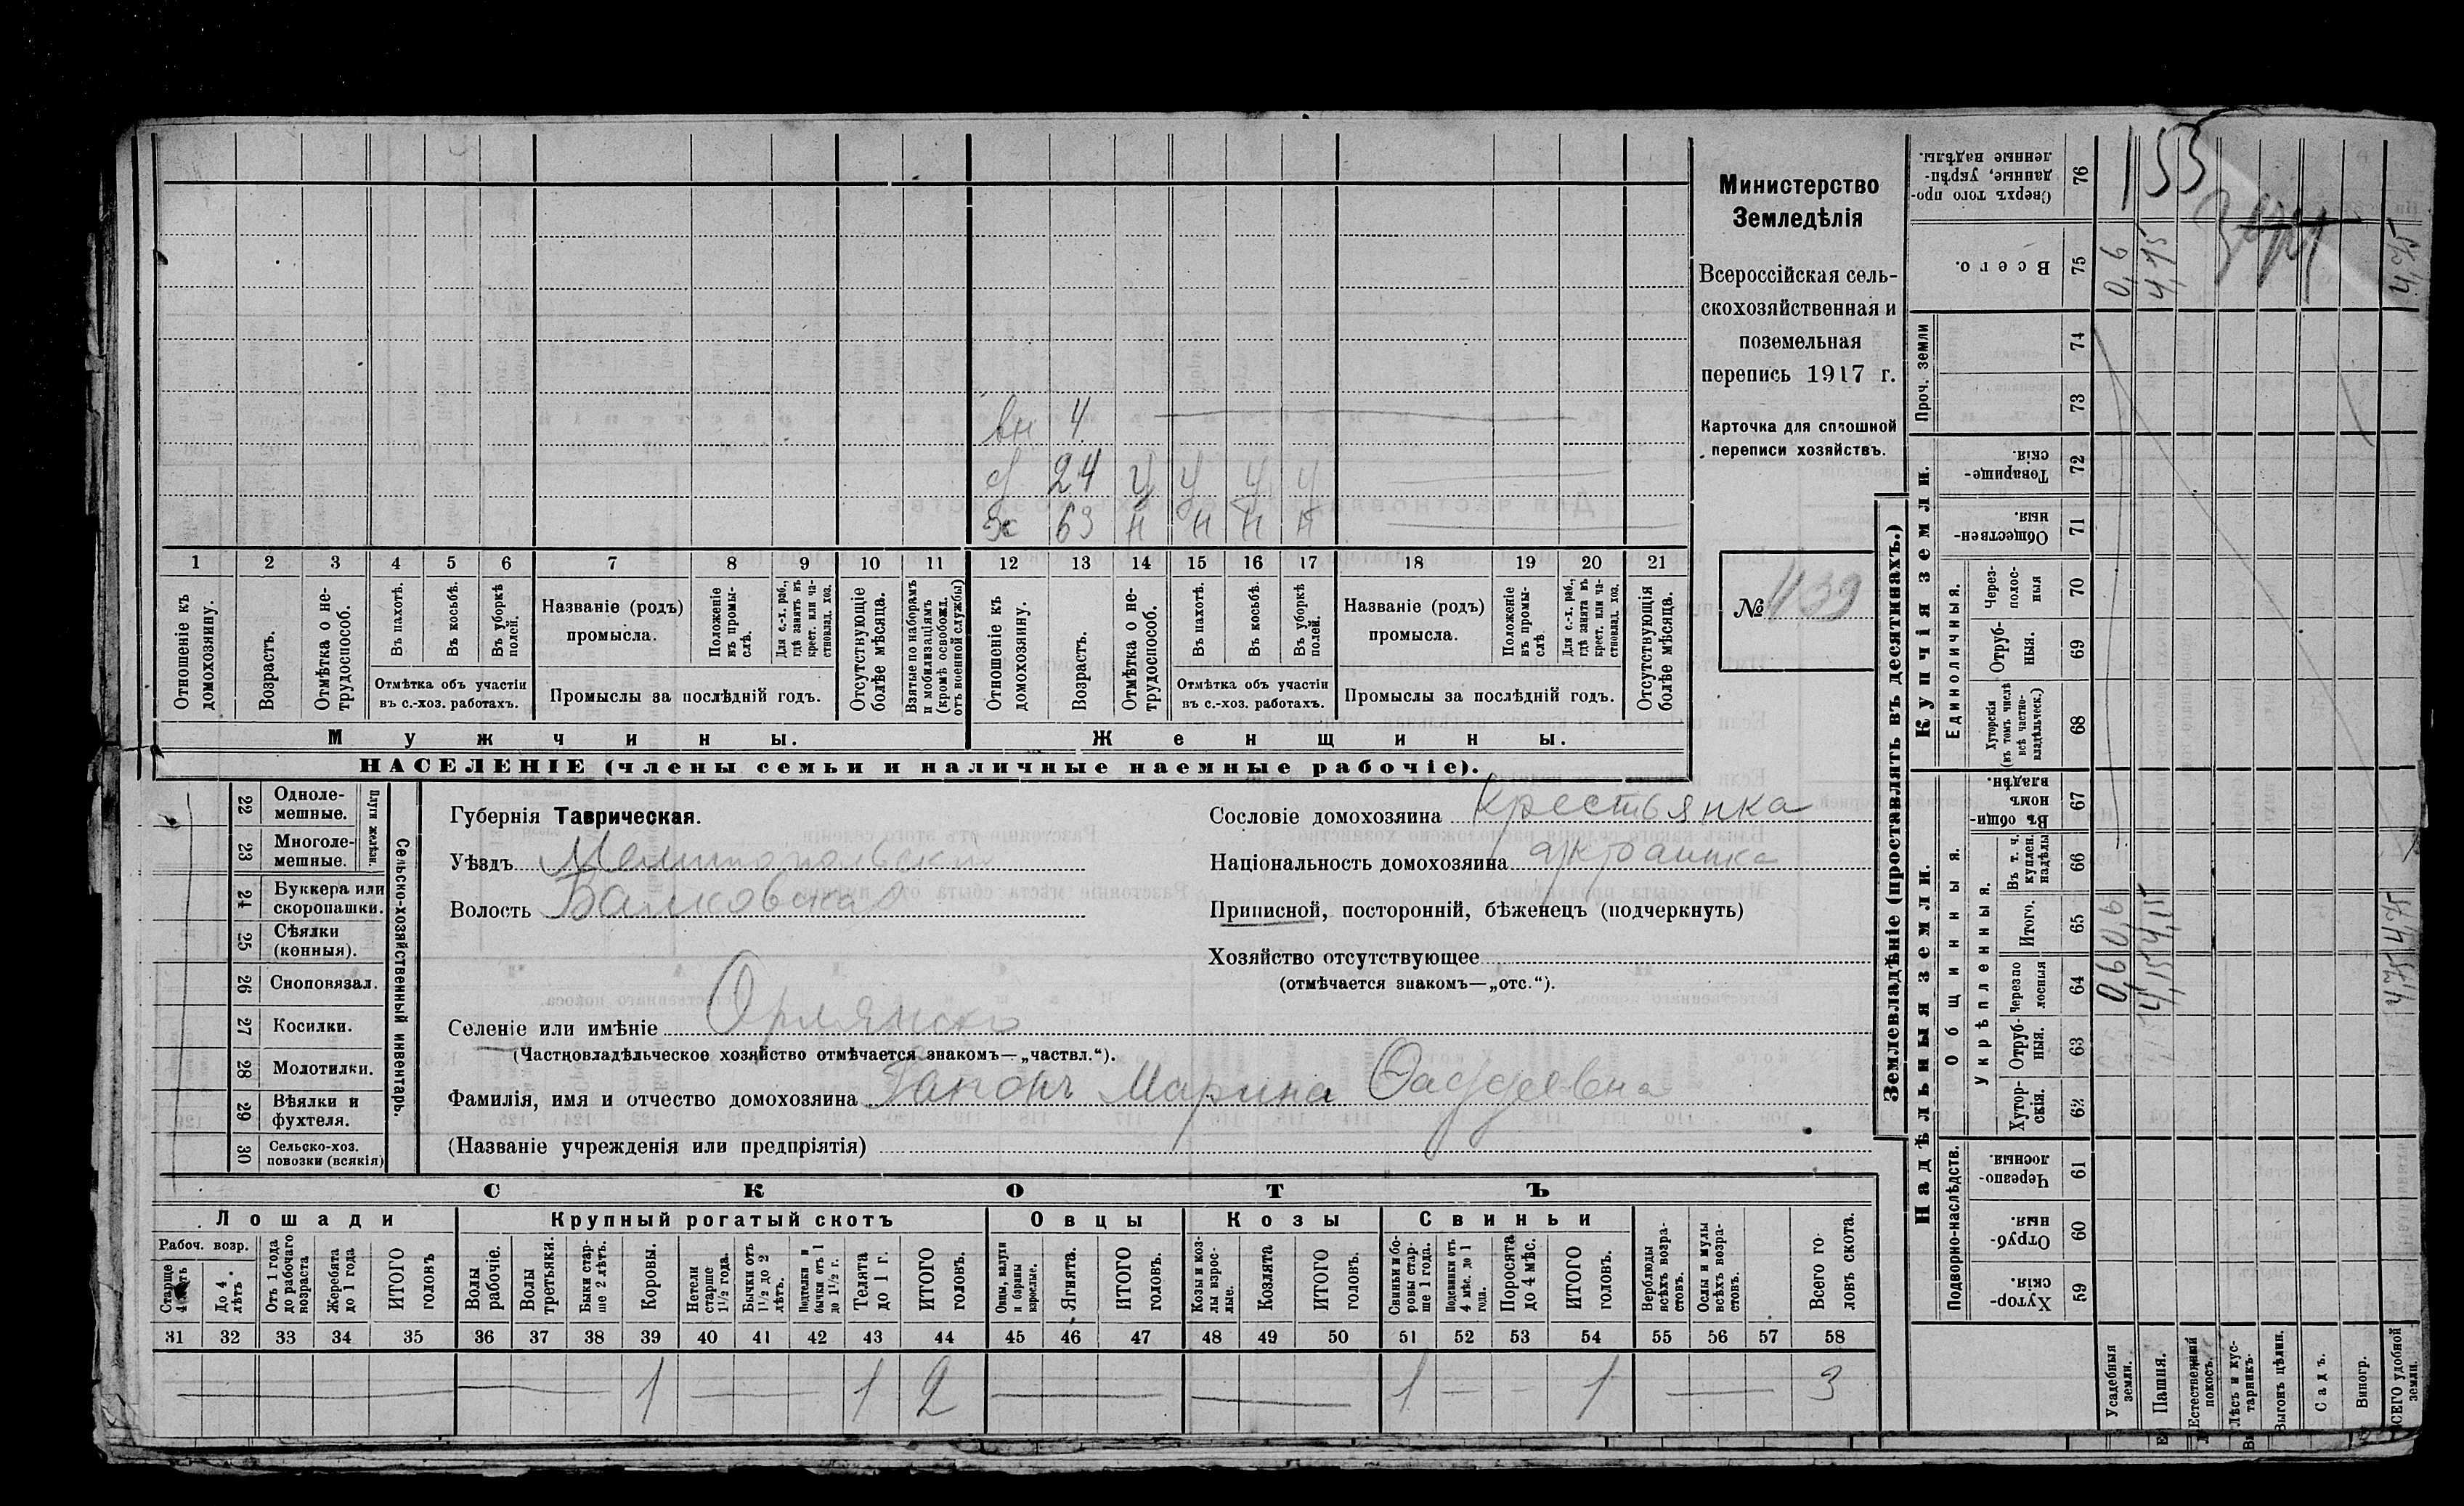 вн 4
д 24 у у у у
ж 63 н н н н
1 2 3 4 5 6 7 8 9 10 11 12 13 14 15 16 17 18 19 20 21
Отношеніе къ домохозяину.
Возрастъ.
Отмѣтка о не-
трудоспособ.
Въ пахотѣ.
Въ косьбѣ.
Въ уборкѣ
полей.
Отмѣтка объ участіи
въ с.-хоз. работахъ.
Названіе (родъ)
промысла.
Положеніе
въ промы-
слѣ.
Для с.-х. раб.,
гдѣ занятъ въ
крест. или ча-
стновлад. хоз.
Промыслы за послѣдній годъ.
Отсутствующіе
болѣе мѣсяца.
Взятые по наборамъ
и мобилизаціямъ
(кромѣ освобожд.
отъ военной службы)
Отношеніе къ
домохозяину.
Возрастъ.
Отмѣтка о не-
трудоспособ.
Въ пахотѣ.
Въ косьбѣ.
Въ уборкѣ
полей.
Отмѣтка объ участіи
въ с.-хоз. работахъ.
Названіе (родъ)
промысла.
Положеніе
въ промы-
слѣ.
Для с.-х. раб.,
гдѣ занята въ
крест. или ча-
стновлад. хоз.
Промыслы за послѣдній годъ.
Отсутствующія
болѣе мѣсяца.
Мужчины.
Женщины.
НАСЕЛЕНІЕ (члены семьи и наличные наемные рабочіе).
Министерство
Земледѣлія
Всероссійская сель-
скохозяйственная и
поземельная
перепись 1917 г.
Карточка для сплошной
переписи хозяйствъ.
№ 439
22 Одноле-
мешные.
23 Многоле-
мешные.
Плуги желѣзн.
24 Буккера или
скоропашки.
25 Сѣялки
(конныя).
26 Сноповязал.
27 Косилки.
28 Молотилки.
29 Вѣялки и
фухтеля.
30 Сельско-хоз.
повозки (всякія)
Сельско-хозяйственный инвентарь.
Губернія Таврическая.
Уѣздъ Мелитопольскій
Волость Балковская
Селеніе или имѣніе Орлянско
(Частновладѣльческое хозяйство отмѣчается знакомъ—„частвл.“).
Фамилія, имя и отчество домохозяина Гапонъ Марина Фаддеевна
(Названіе учрежденія или предпріятія)
Сословіе домохозяина Крестьянка
Національность домохозяина украинка
Приписной, посторонній, бѣженецъ (подчеркнуть)
Хозяйство отсутствующее
(отмѣчается знакомъ—„отс.“).
СКОТЪ
Лошади
Крупный рогатый скотъ
Овцы
Козы
Свиньи
Рабоч. возр.
Старше
4 лѣтъ
До 4
лѣтъ
Отъ 1 года
до рабочаго
возраста
Жеребята
до 1 года
ИТОГО
головъ
Волы
рабочіе.
Волы
третьяки.
Быки стар-
ше 2 лѣтъ.
Коровы.
Нетели
старше
1½ года.
Бычки отъ
1½ до 2
лѣтъ.
Подтелки и
бычки отъ 1
до 1½ г.
Телята
до 1 г.
ИТОГО
головъ.
Овцы, валухи
и бараны
взрослые.
Ягнята.
ИТОГО
головъ.
Козы и коз-
лы взрос-
лые.
Козлята
ИТОГО
головъ.
Свиньи и бо-
ровы стар-
ше 1 года.
Подсвинки отъ
4 мѣс. до 1
года.
Поросята
до 4 мѣс.
ИТОГО
головъ.
Верблюды
всѣхъ возра-
стовъ.
Ослы и мулы
всѣхъ возра-
стовъ.
Всего го-
ловъ скота.
31 32 33 34 35 36 37 38 39 40 41 42 43 44 45 46 47 48 49 50 51 52 53 54 55 56 57 58
1 1 2 1 1 3
Землевладѣніе (проставлять въ десятинахъ.)
Купчія земли.
Надѣльныя земли.
Сверхъ того про-
данные, укрѣп-
ленные надѣлы.
76
155
Всего.
75 0,6 4,15 4,75
Проч. земли
74
73
Товарище-
скія.
72
Обществен-
ныя.
71
Единоличныя.
Через-
полос-
ныя
70
Отруб-
ныя.
69
Хуторскія
(въ томъ числѣ
всѣ частно-
владѣльческ.)
68
Общинныя.
Въ общи-
номъ
владѣн.
67
Укрѣпленныя.
Въ т. ч.
куплен.
надѣлы
66
Итого.
65 0,6 4,15 4,75
Черезпо
лосныя
64 0,6 4,15 4,75
Отруб-
ныя.
63
Хутор-
скія.
62
Подворно-наслѣдств.
Черезпо-
лосныя.
61
Отруб-
ныя.
60
Хутор-
скія.
59
Усадебныя
земли.
Пашня.
Естественный
покосъ.
Лѣсъ и кус-
тарникъ.
Выгонъ цѣлин.
Садъ.
Виногр.
ВСЕГО удобной
земли.